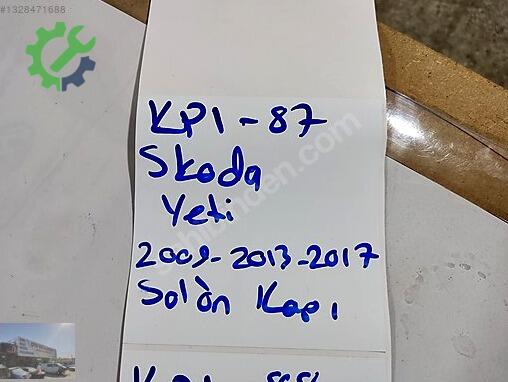 #1328471688
KPI-87
Skoda
Yeti
2009-2013-2017
Sol Ön Kapı
sahibinden.com